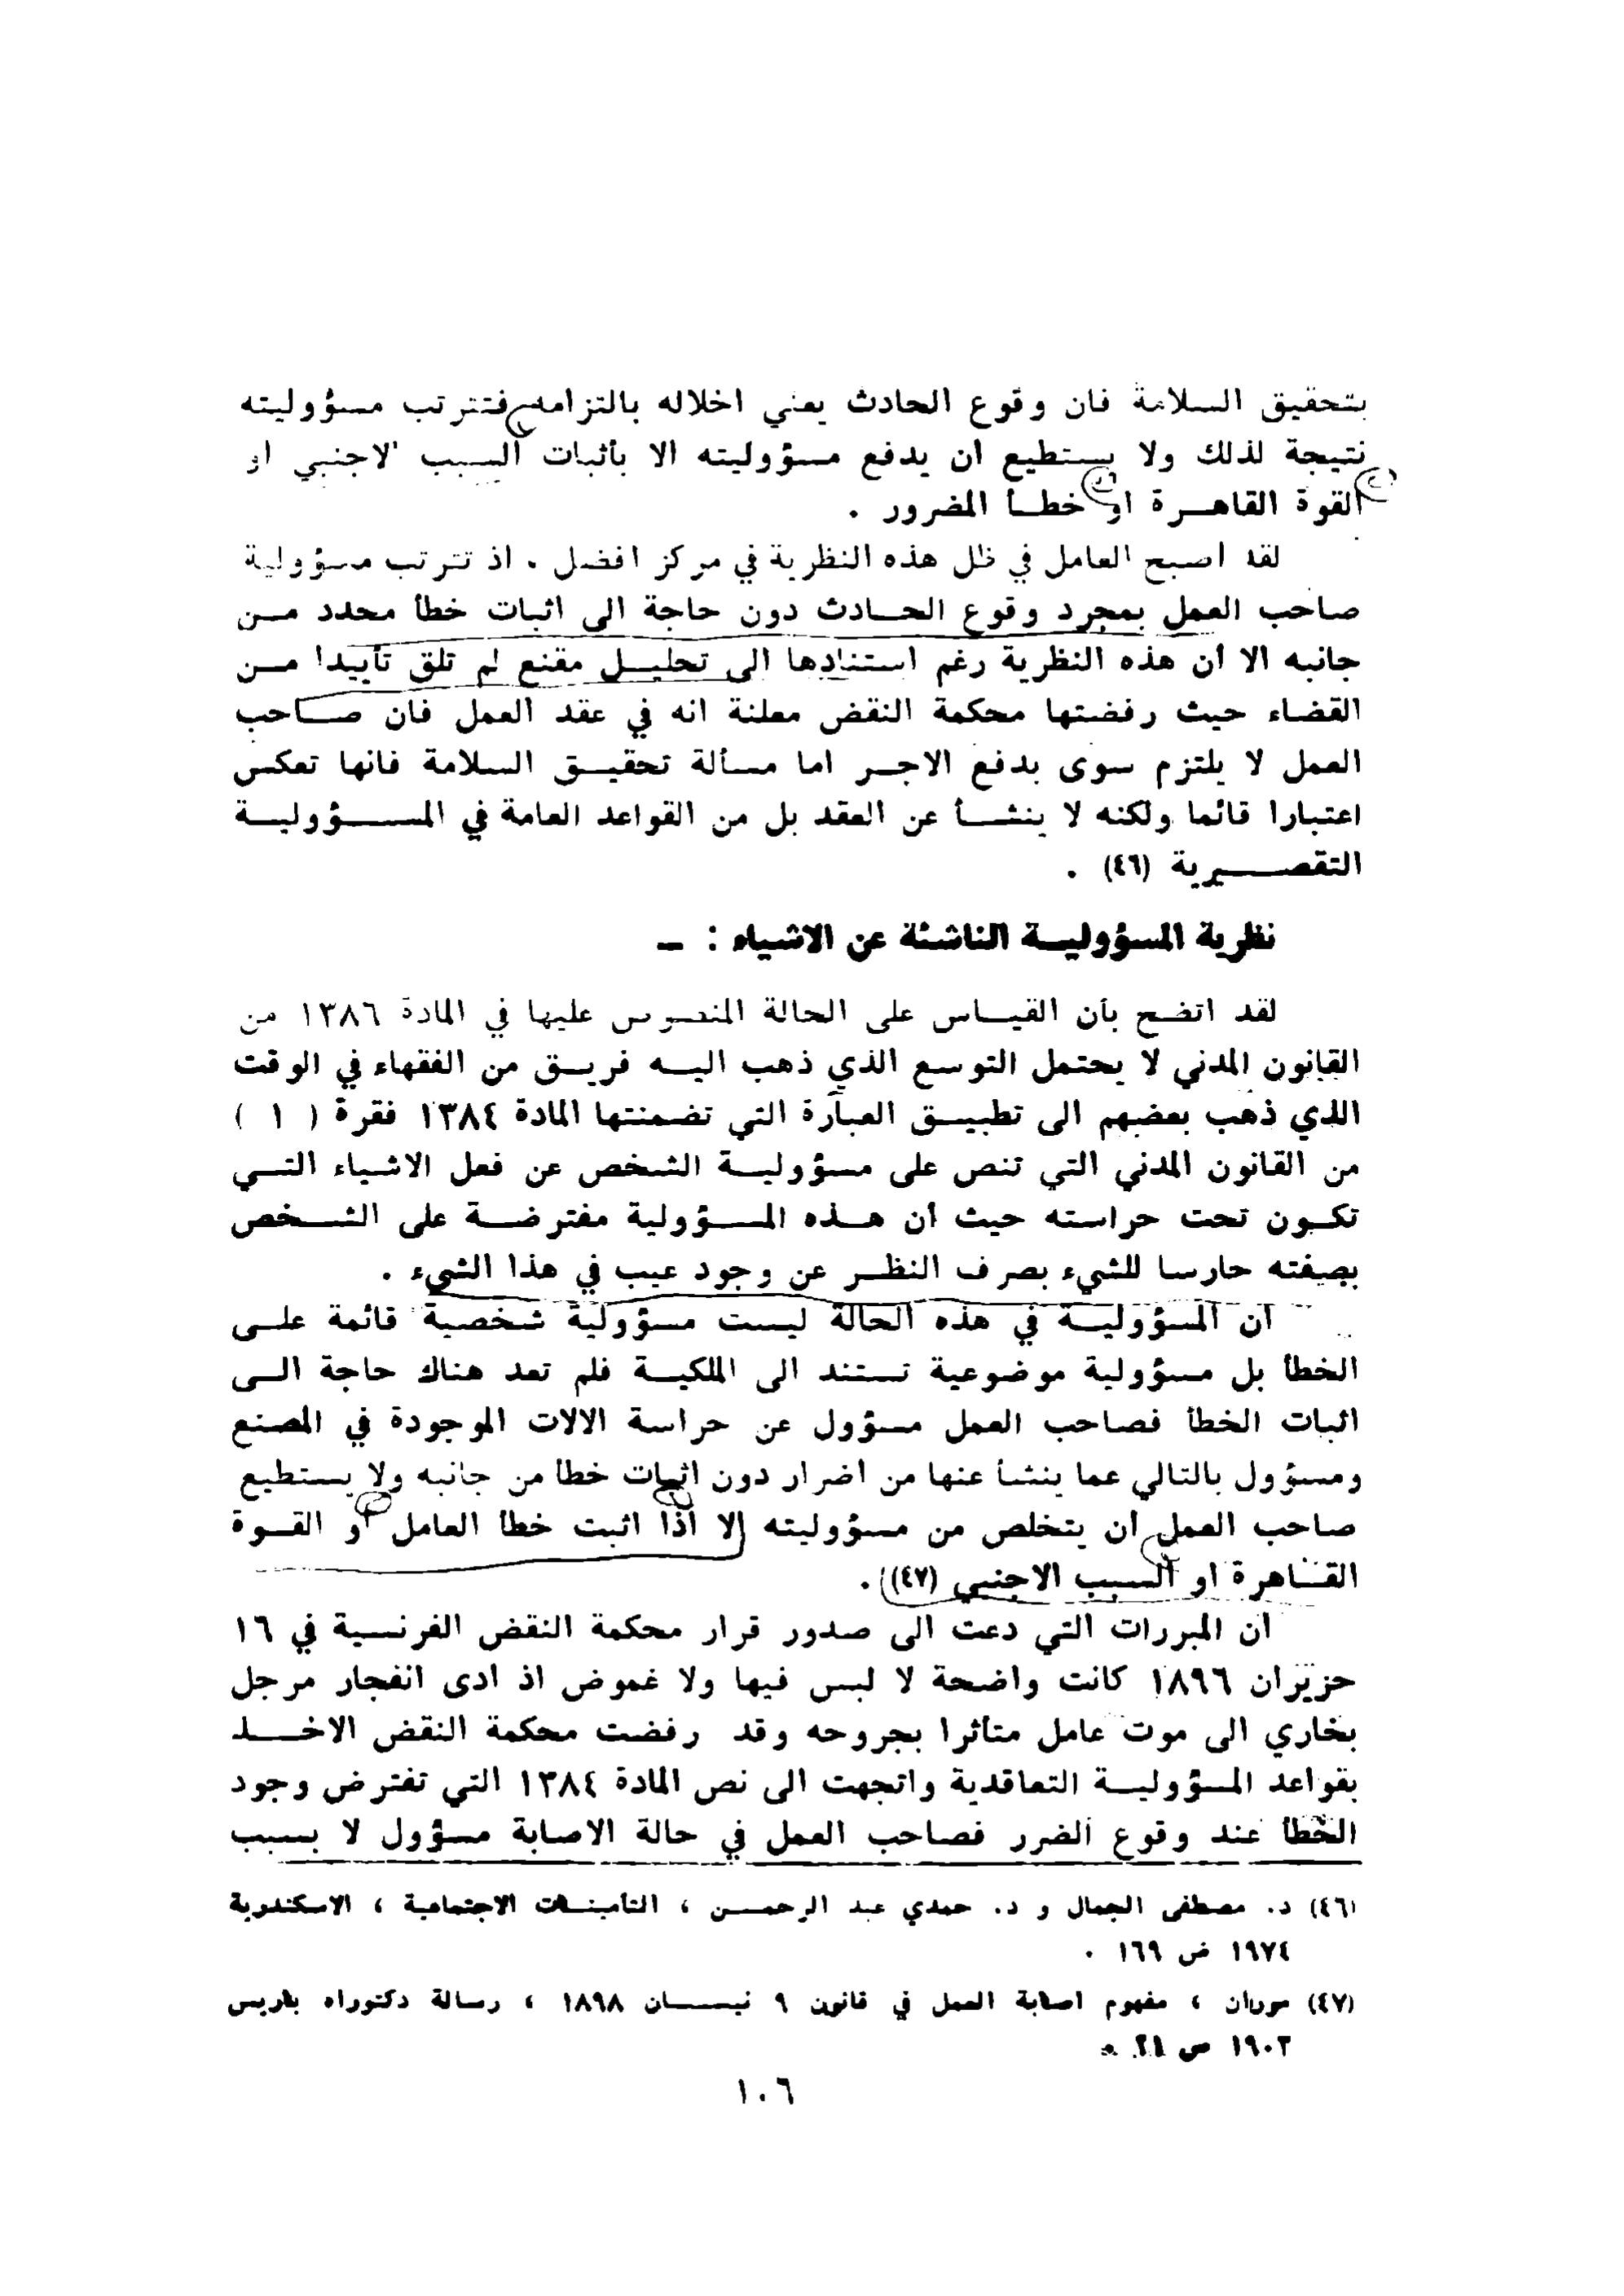 بتحقيق السلامة فان وقوع الحادث يعني اخلاله بالتزامه فتترتب مسؤوليته
نتيجة لذلك ولا يستطيع ان يدفع مسؤوليته الا بأثبات السبب الاجنبي او
القوة القاهرة او خطأ المضرور .
لقد اصبح العامل في ظل هذه النظرية في مركز افضل . اذ تترتب مسؤولية
صاحب العمل بمجرد وقوع الحادث دون حاجة الى اثبات خطأ محدد من
جانبه الا أن هذه النظرية رغم استنادها الى تحليل مقنع لم تلق تأييدا من
القضاء حيث رفضتها محكمة النقض معلنة انه في عقد العمل فان صاحب
العمل لا يلتزم سوى بدفع الاجر اما مسألة تحقيق السلامة فانها تعكس
اعتبارا قائما ولكنه لا ينشأ عن العقد بل من القواعد العامة في المسؤولية
التقصيرية (٤٦) .
نظرية المسؤولية الناشئة عن الاشياء : ـ
لقد اتضح بأن القياس على الحالة المنصوص عليها في المادة ١٣٨٦ من
القانون المدني لا يحتمل التوسع الذي ذهب اليه فريق من الفقهاء في الوقت
الذي ذهب بعضهم الى تطبيق العبارة التي تضمنتها المادة ١٣٨٤ فقرة ( ١ )
من القانون المدني التي تنص على مسؤولية الشخص عن فعل الاشياء التي
تكون تحت حراسته حيث أن هذه المسؤولية مفترضة على الشخص
بصفته حارسا للشيء بصرف النظر عن وجود عيب في هذا الشيء .
ان المسؤولية في هذه الحالة ليست مسؤولية شخصية قائمة على
الخطأ بل مسؤولية موضوعية تستند الى الملكية فلم تعد هناك حاجة الى
اثبات الخطأ فصاحب العمل مسؤول عن حراسة الالات الموجودة في المصنع
ومسؤول بالتالي عما ينشأ عنها من اضرار دون اثبات خطأ من جانبه ولا يستطيع
صاحب العمل أن يتخلص من مسؤوليته الا اذا اثبت خطأ العامل أو القوة
القاهرة او السبب الاجنبي (٤٧) .
ان المبررات التي دعت الى صدور قرار محكمة النقض الفرنسية في ١٦
حزيران ١٨٩٦ كانت واضحة لا لبس فيها ولا غموض اذ ادى انفجار مرجل
بخاري الى موت عامل متأثرا بجروحه وقد رفضت محكمة النقض الاخذ
بقواعد المسؤولية التعاقدية واتجهت الى نص المادة ١٣٨٤ التي تفترض وجود
الخطأ عند وقوع الضرر فصاحب العمل في حالة الاصابة مسؤول لا بسبب
(٤٦) د. مصطفى الجمال و د. حمدي عبد الرحمن ، التأمينات الاجتماعية ، الاسكندرية
١٩٧٤ ص ١٦٩ .
(٤٧) موران ، مفهوم اصابة العمل في قانون ٩ نيسان ١٨٩٨ ، رسالة دكتوراه باريس
١٩٠٢ ص ٢١ .
١٠٦